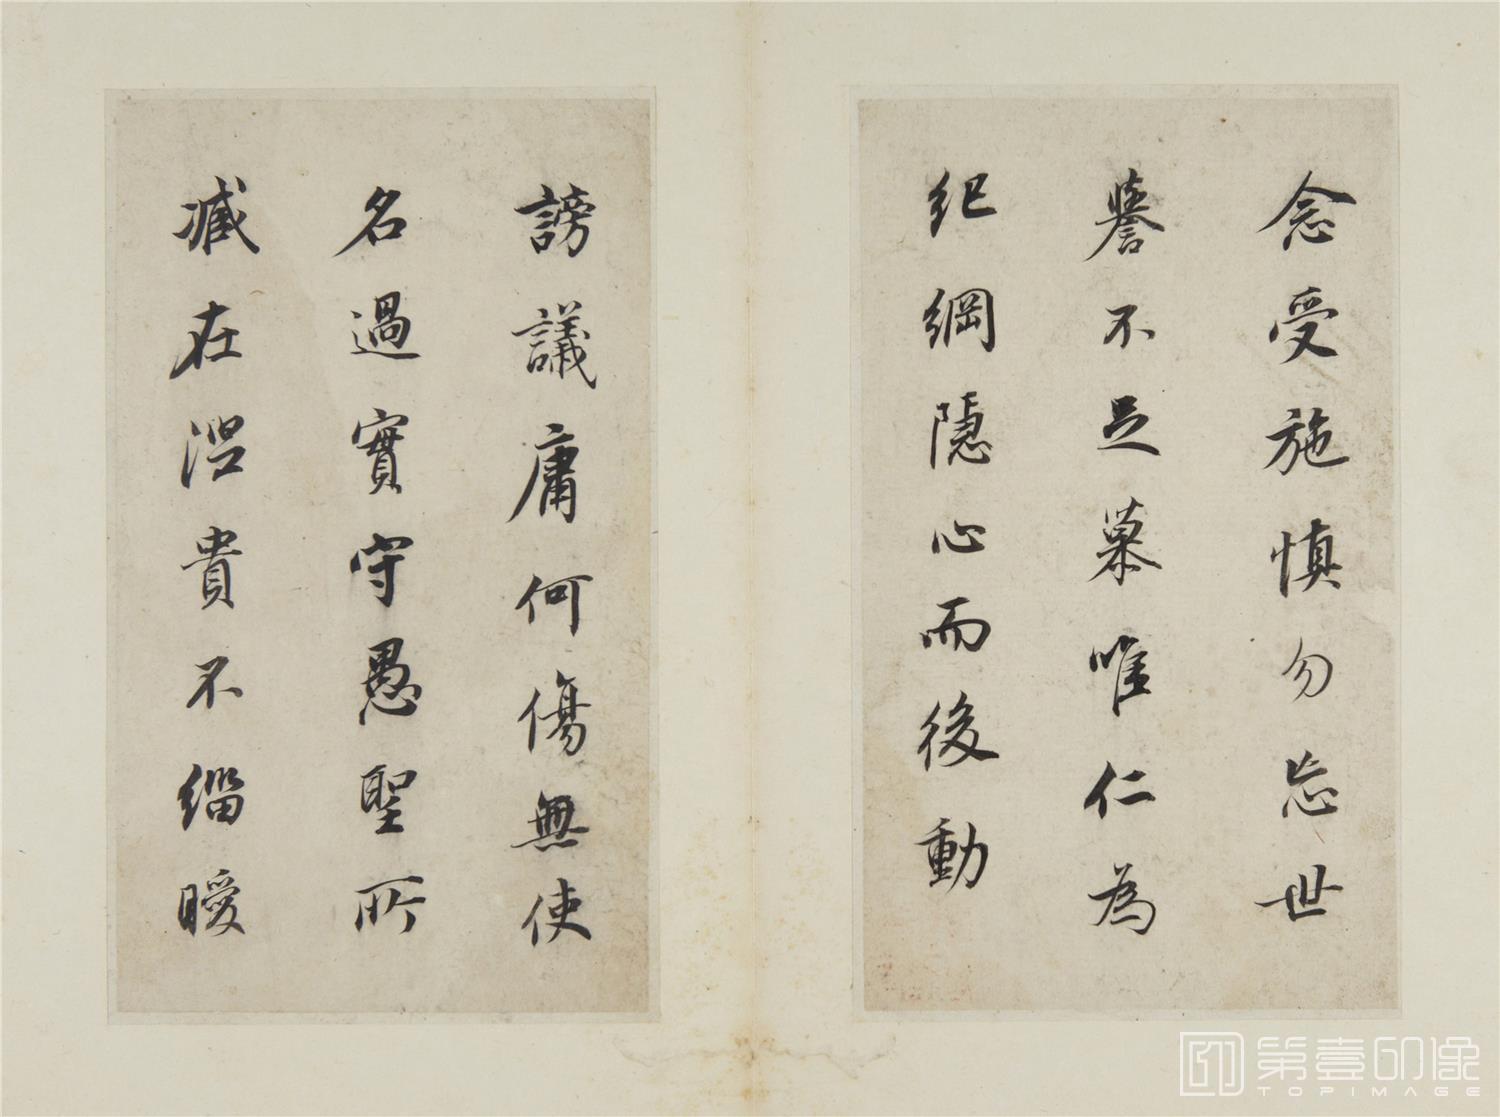 念受施慎勿忘世
譽不足慕唯仁為
紀綱隱心而後動
謗議庸何傷無使
名過實守愚聖所
臧在涅貴不緇曖
第壹印像
TOPIMAGE